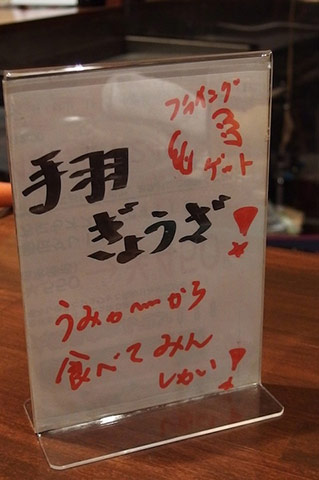 フライング
ゲート
手羽
ぎょうざ！
うみゃ〜から
食べてみん
しかい！